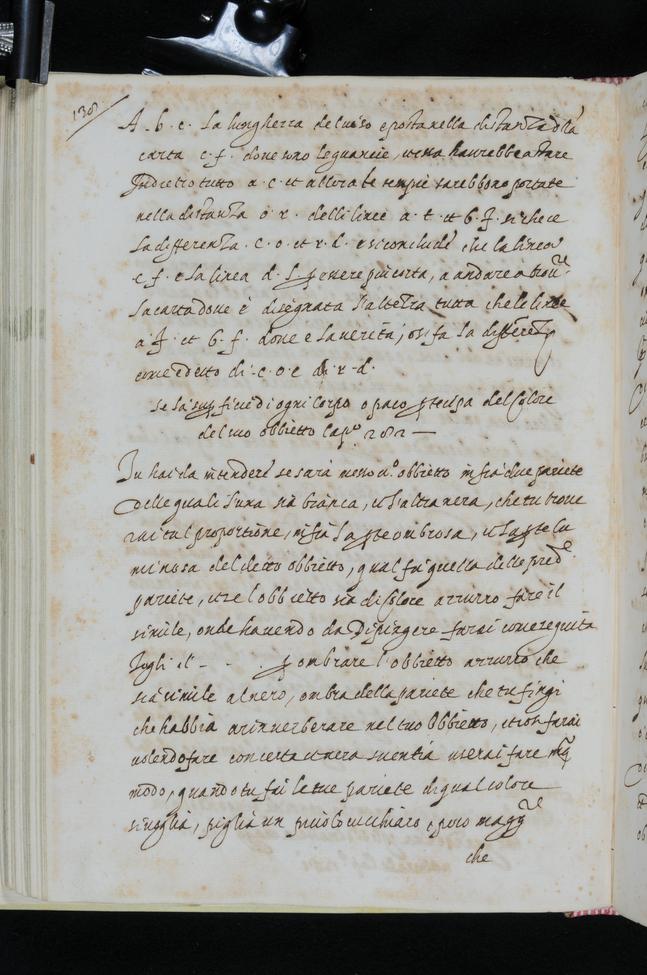 130
A. b. c. la lunghezza del viso e posta nella distanza d.la
carta c. f. dove sono le guancie, et essa havrebbe a stare
Indietro tutto a. c. et allora le tempie sarebbono portate
nella distanza o. r. delli linee a. f. et b. f. si che ce
la differenza. c. o. et r. d. e si conclude che la linea
c. f. e la linea d. f. per essere piu corta, a andare a trov.
la carta dove è disegnata l'altezza tutta che le linee
a. f. et b. f. dove e la verità, et si fa la differenza
come e detto di. c. o. e di r. d.
Se la superfitie di ogni corpo opaco partecipa del Colore
del suo obbietto Cap.o 202
Tu hai da intendere se sarà messo un.o obbietto in fra due pariete
delle quali l'una sia bianca, et l'altra nera, che tu trove
rai tal proportione, in fra la parte ombrosa, et la parte lu
minosa del detto obbietto, qual fu quella delle pred.e
pariete, et se l'obbietto sia di colore azzurro fare il
simile, onde havendo da Dipingere farai come seguita
Togli il - . . per ombrare l'obbietto azzurro che
sia simile al nero, ombra della pariete che tu fingi
che habbia a rinverberare nel tuo Obbietto, et così farai
volendo fare con certa et vera scientia userai fare in q.
modo, quando tu fai le tue pariete di qual colore
si voglia, piglia un picciolo cucchiaro, o poco magg.re
che